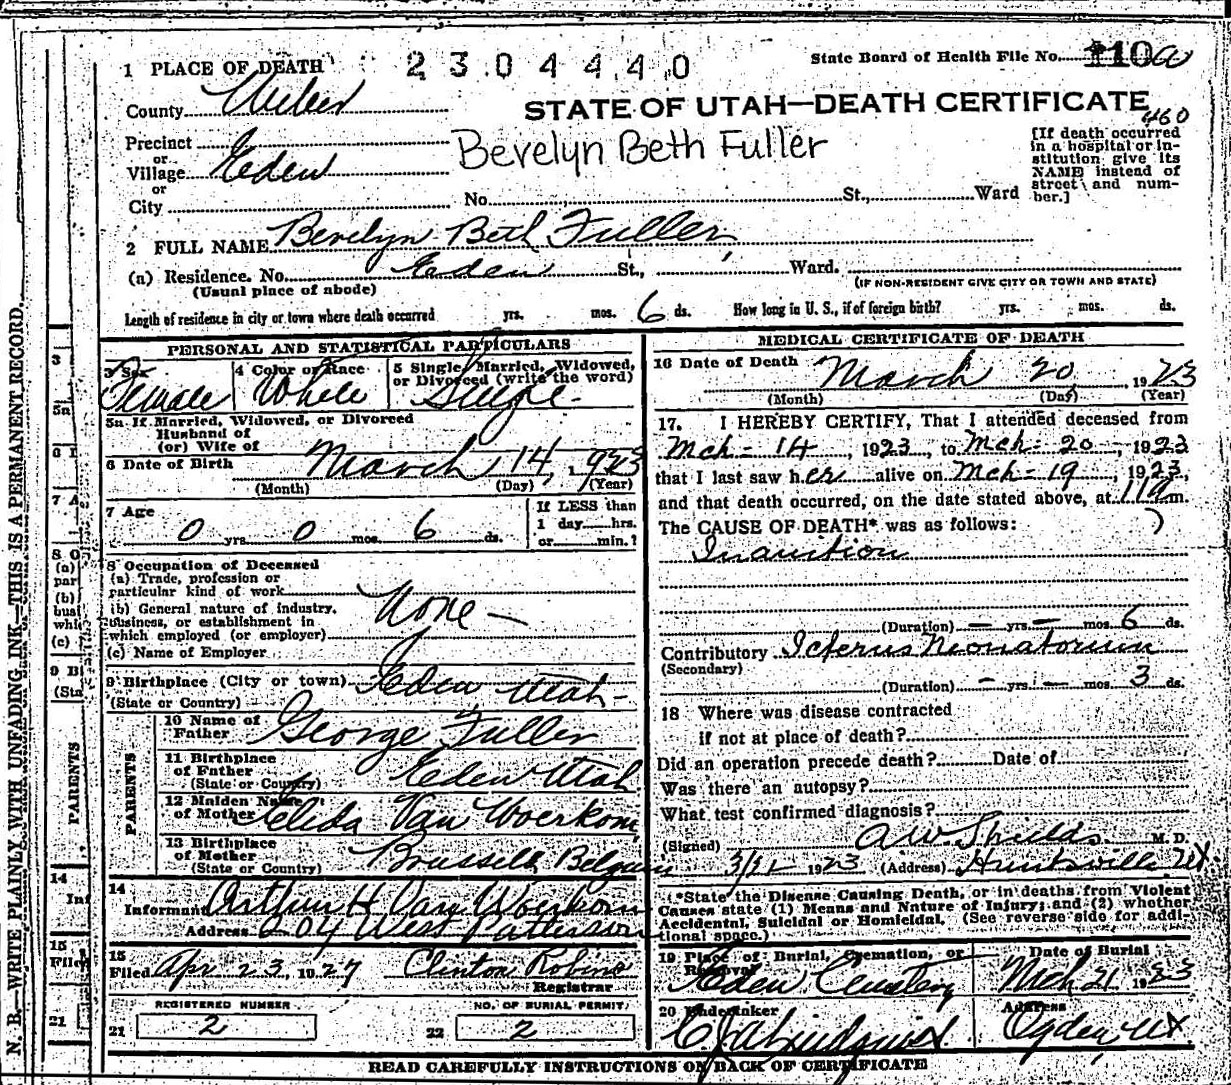 1 PLACE OF DEATH 2 3 0 4 4 4 0 State Board of Health File No. 110 a
County Weber STATE OF UTAH—DEATH CERTIFICATE 460
Precinct
or
Village Eden Bevelyn Beth Fuller
[If death occurred
in a hospital or in-
stitution give its
NAME instead of
street and num-
ber.]
or
City No. St., Ward
2 FULL NAME Bevelyn Beth Fuller
(a) Residence. No. Eden St., Ward.
(Usual place of abode) (IF NON-RESIDENT GIVE CITY OR TOWN AND STATE)
Length of residence in city or town where death occurred yrs. mos. 6 ds. How long in U. S., if of foreign birth? yrs. mos. ds.
PERSONAL AND STATISTICAL PARTICULARS
3 Sex 4 Color or Race 5 Single, Married, Widowed,
or Divorced (write the word)
Female White Single
5a If Married, Widowed, or Divorced
Husband of
(or) Wife of
6 Date of Birth March 14, 1923
(Month) (Day) (Year)
7 Age If LESS than
0 yrs. 0 mos. 6 ds. 1 day hrs.
or min.?
8 Occupation of Deceased
(a) Trade, profession or
particular kind of work
(b) General nature of industry,
business, or establishment in
which employed (or employer) None —
(c) Name of Employer
9 Birthplace (City or town) Eden Utah
(State or Country)
PARENTS
10 Name of
Father George Fuller
11 Birthplace
of Father Eden Utah
(State or Country)
12 Maiden Name
of Mother Van Woerkom
13 Birthplace
of Mother Brussells Belgium
(State or Country)
14
Informant Arthur H Van Woerkom
Address 204 West Patterson
15
Filed Apr 23, 1927 Clinton Robins
Registrar
REGISTERED NUMBER NO. OF BURIAL PERMIT
21 2 22 2
MEDICAL CERTIFICATE OF DEATH
16 Date of Death March 20, 1923
(Month) (Day) (Year)
17. I HEREBY CERTIFY, That I attended deceased from
Mch - 14, 1923, to Mch - 20, 1923
that I last saw her alive on Mch - 19, 1923,
and that death occurred, on the date stated above, at 11 a m.
The CAUSE OF DEATH* was as follows:
Inanition
(Duration) — yrs. — mos. 6 ds.
Contributory Icterus Neonatorium
(Secondary)
(Duration) — yrs. — mos. 3 ds.
18 Where was disease contracted
if not at place of death?
Did an operation precede death? Date of
Was there an autopsy?
What test confirmed diagnosis?
(Signed) A.W. Shields M. D.
1923 (Address) Huntsville Ut.
(*State the Disease Causing Death, or in deaths from Violent
Causes state (1) Means and Nature of Injury; and (2) whether
Accidental, Suicidal or Homicidal. (See reverse side for addi-
tional space.)
19 Place of Burial, Cremation, or Date of Burial
Removal
Eden Cemetery Mch 21 1923
20 Undertaker Address
Ogden, Ut
READ CAREFULLY INSTRUCTIONS ON BACK OF CERTIFICATE
N. B.—WRITE PLAINLY WITH UNFADING INK—THIS IS A PERMANENT RECORD.
3
5a
6
7 A
8 O
(a)
par
(b)
busi
whic
(c)
9 Bi
(Sta
PARENTS
14
Inf
15
Filed
21